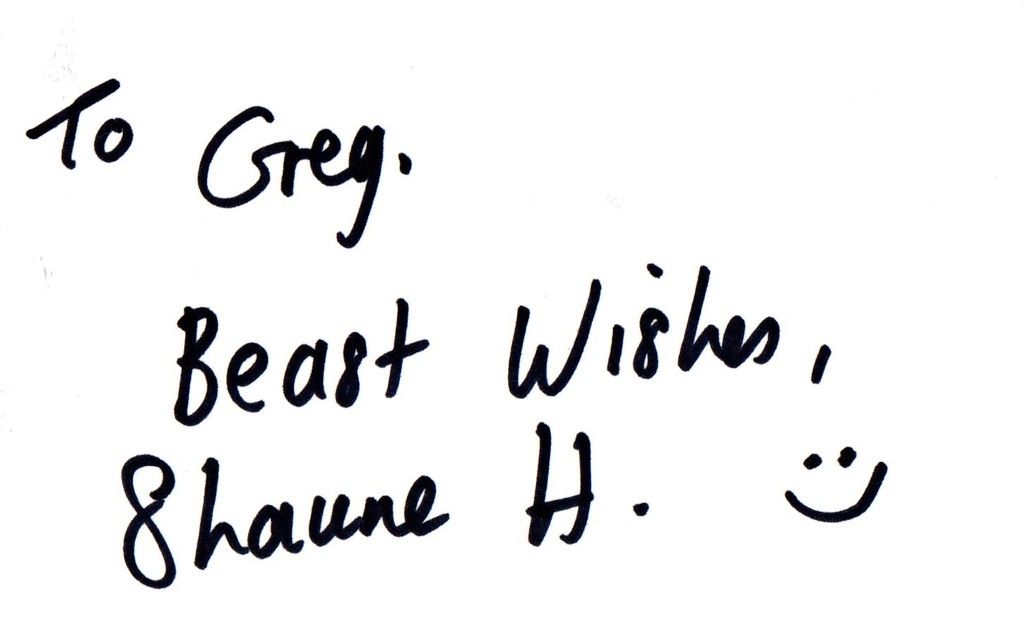 To Greg.
Beast Wishes,
Shaune H.